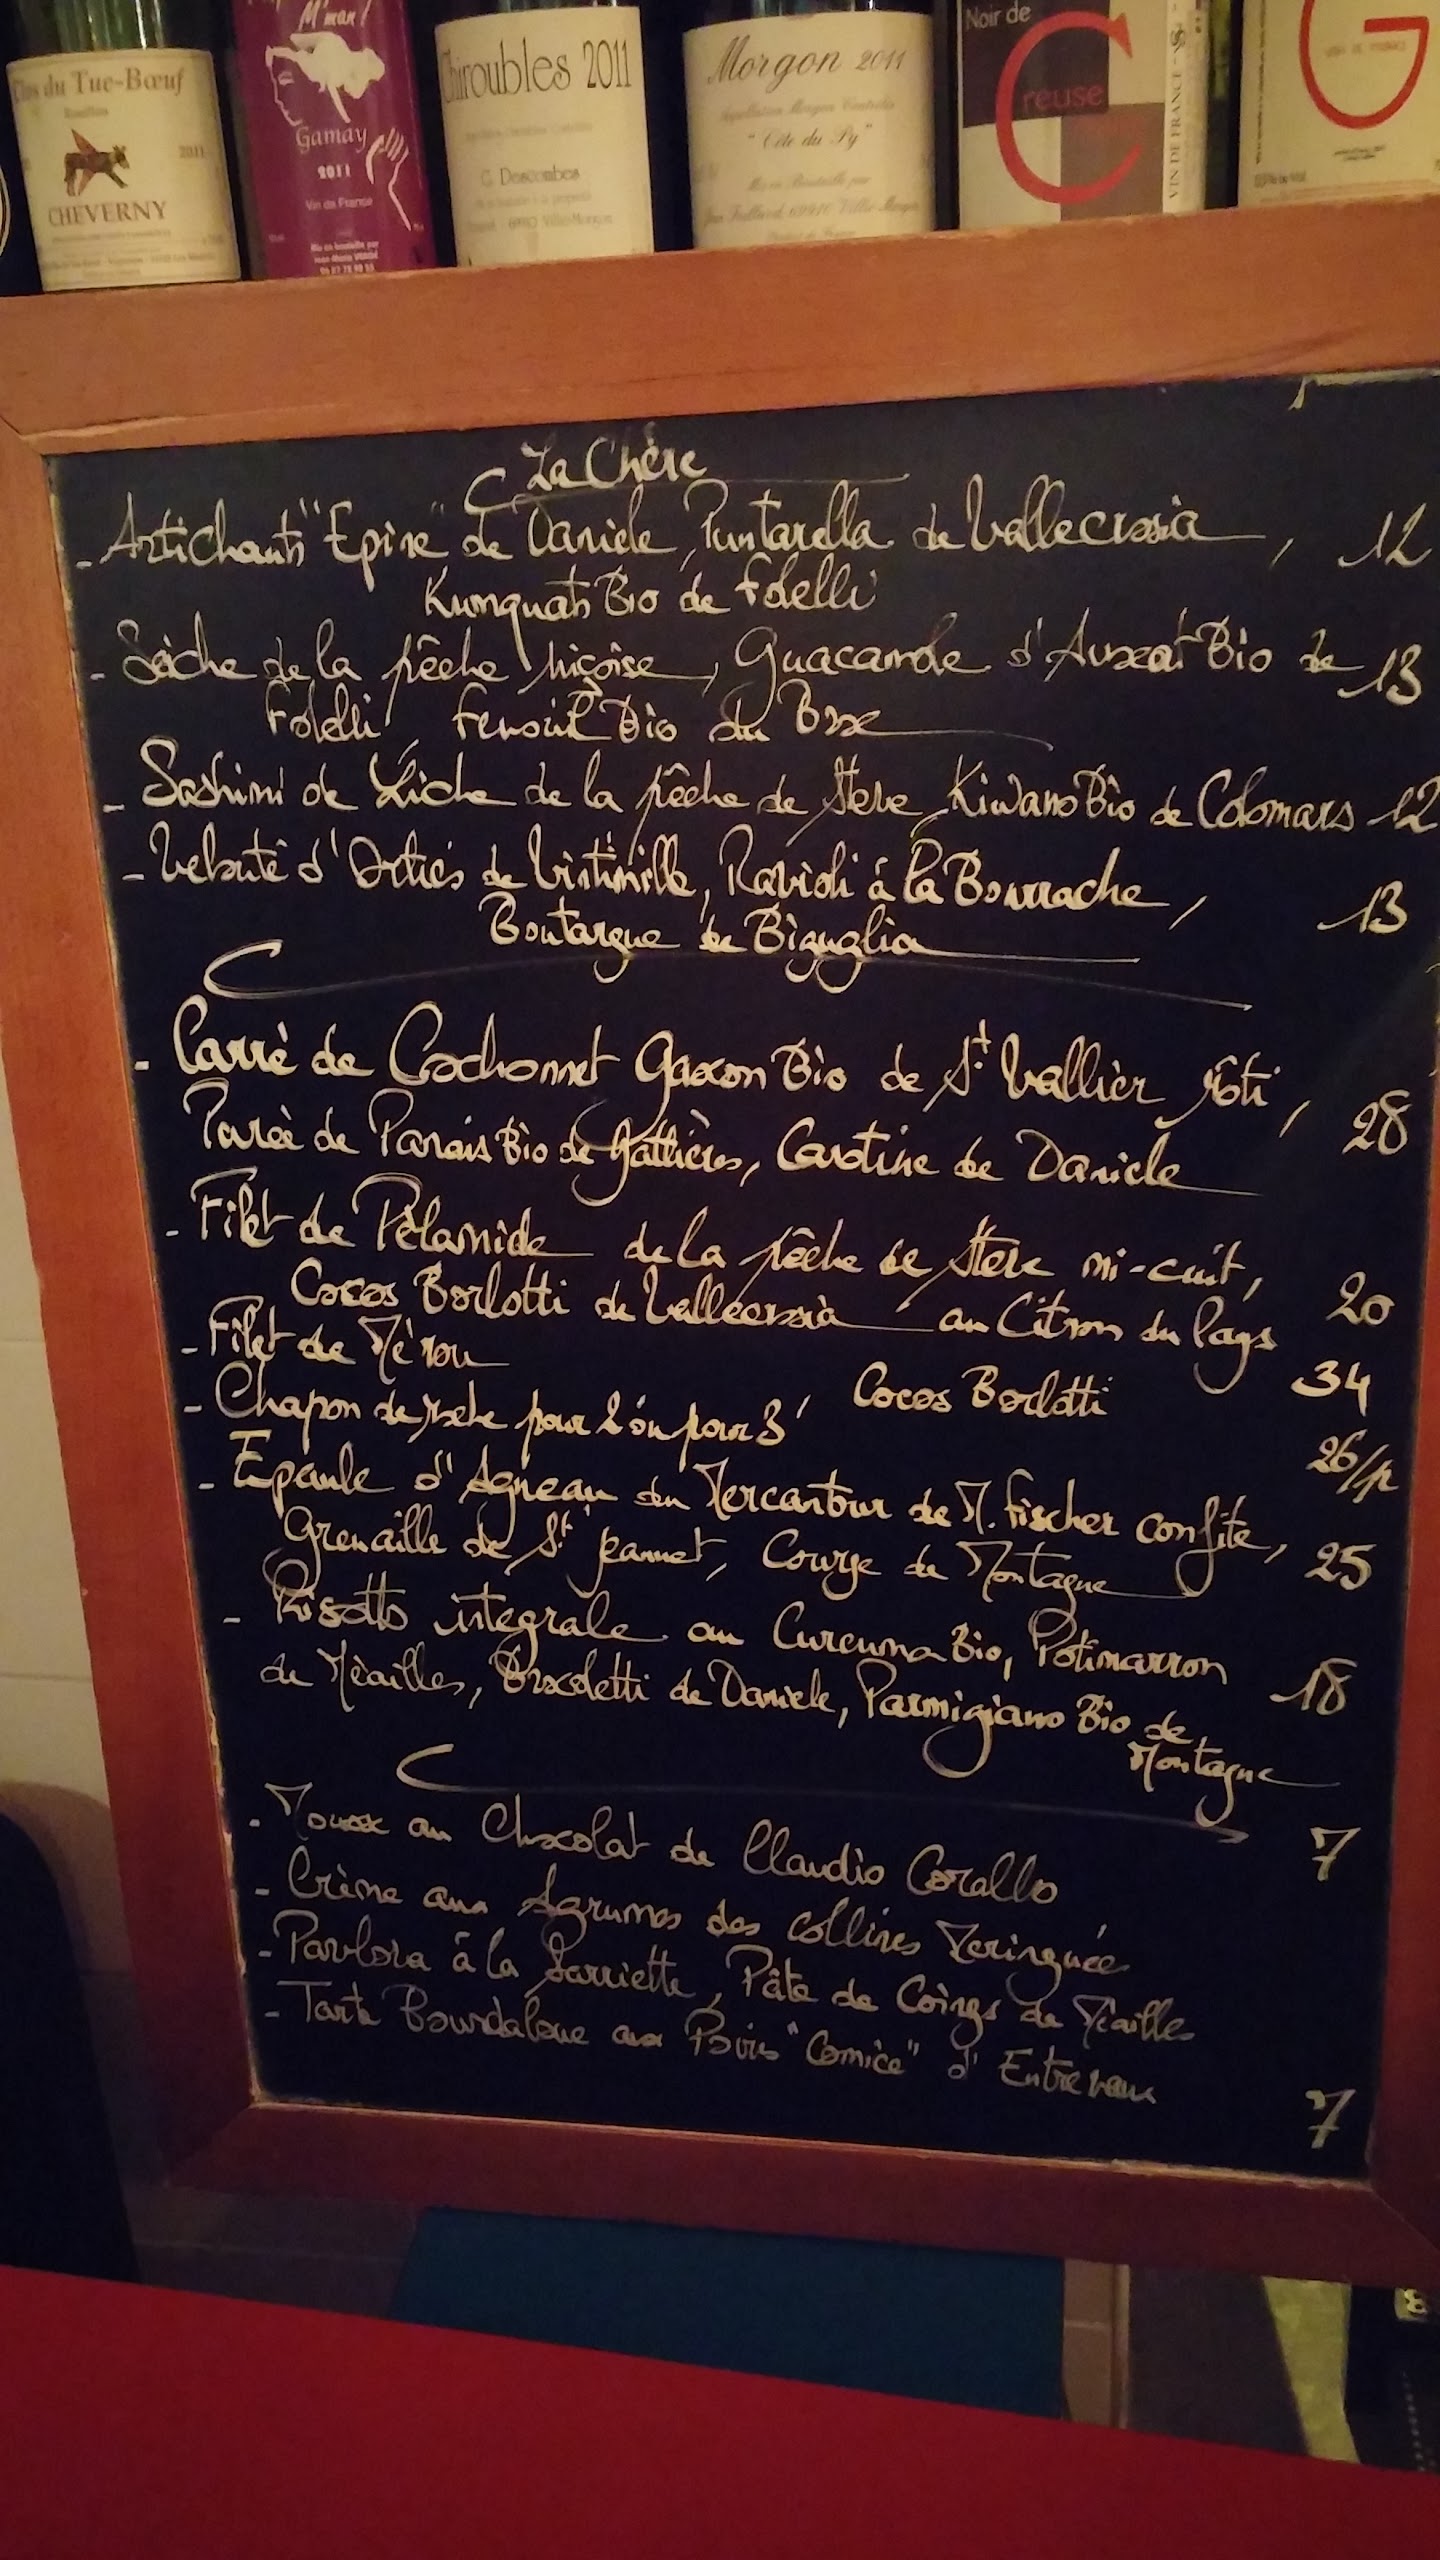 Clos du Tue-Bœuf
2011
CHEVERNY
M'man!
Gamay
2011
Vin de France
Mis en bouteille par
Chiroubles 2011
G. Descombes
69910 Villié-Morgon
Morgon 2011
Appellation Morgon Contrôlée
"Côte du Py"
Mis en Bouteille par
69910 Villié-Morgon
Noir de
Creuse
VIN DE FRANCE
G
La Chère
- Artichauts "Epine" de Daniele, Puntarella de Vallecrosia, 12
Kumquats Bio de Folelli
- Sèiche de la pêche niçoise, Guacamole d'Avocat Bio de 13
Folelli, Fenouil Bio du Broc
- Sashimi de Liche de la pêche de Steve, Kiwano Bio de Colomars 12
- Velouté d'Orties de Vintimille, Ravioli à la Bourrache, 13
Boutargue de Biguglia
- Carré de Cochonnet Gascon Bio de St Vallier rôti, 28
Purée de Panais Bio de Gattières, Carotine de Daniele
- Filet de Pélamide de la pêche de Steve mi-cuit, 20
Cocos Borlotti de Vallecrosia au Citron du Pays
- Filet de Mérou Cocos Borlotti 34
- Chapon de pêche pour 2 ou pour 3 26/p
- Epaule d'Agneau du Mercantour de M. Fischer confite, 25
Grenaille de St Jeannet, Courge de Montagne
- Risotto integrale au Curcuma Bio, Potimarron 18
de Méailles, Brocoletti de Daniele, Parmigiano Bio de
Montagne
- Mousse au Chocolat de Claudio Corallo 7
- Crème aux Agrumes des collines Meringuée
- Pavlova à la Sarriette, Pâte de Coings de Méailles
- Tarte Bourdaloue aux Poires "Comice" d'Entrevaux
7